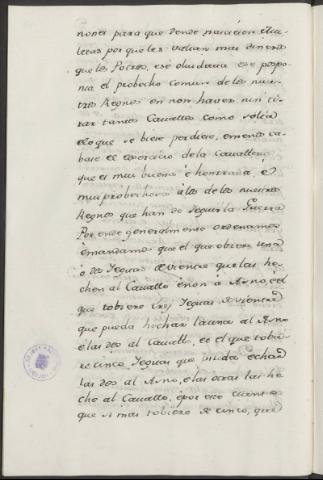 nones para que donde naciesen Mu-
letas por que les valian mas dineros
que los Potros, e se olvidava e se pospo-
nia el probecho comun de los nues-
tros Regnos en non haver nin ti-
rar tantos Cavallos como solia
e lo que se biese perdiese, e menosca-
base el exercicio de la Cavalleria
que es muy buena e honrrada, e
muy probechosa a los de los nuestros
Regnos que han de seguir la Guerra
Por ende generalmente ordenamos
e mandamos que el que obiere una
o dos Yeguas de vientre que las he-
chen al Cavallo e non a Asno, e el
que tobiere tres Yeguas de vientre
que pueda hechar la una al Asno
e las dos al Cavallo, e el que tobie-
re cinco Yeguas que pueda echar
las dos al Asno, e las otras las he-
che al Cavallo, e por este cuento
que si mas tobiere de cinco, que